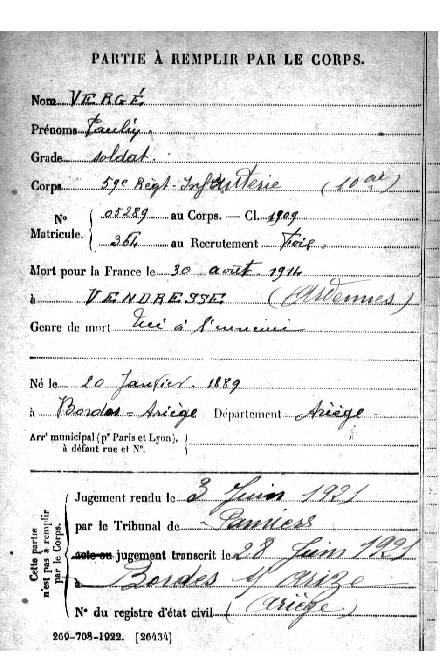 PARTIE À REMPLIR PAR LE CORPS.
Nom VERGÉ
Prénoms Paulin
Grade soldat.
Corps 59e Régt. Infanterie (10e Cie)
N° Matricule. { 05289 au Corps. — Cl. 1909
364 au Recrutement Foix.
Mort pour la France le 30 août 1914
à VENDRESSE (Ardennes)
Genre de mort Tué à l'ennemi
Né le 20 Janvier 1889
à Bordes-Ariège Département Ariège
Arrt municipal (pr Paris et Lyon), à défaut rue et N°.
Cette partie n'est pas à remplir par le Corps.
Jugement rendu le 3 Juin 1921
par le Tribunal de Pamiers
acte ou jugement transcrit le 28 Juin 1921
à Bordes s/ Arize
(Ariège)
N° du registre d'état civil
260-708-1922. [26434]